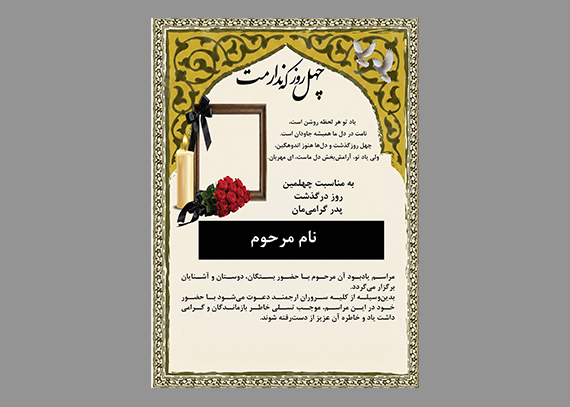 چهل روز که ندارمت
یاد تو هر لحظه روشن است،
نامت در دل ما همیشه جاودان است.
چهل روز گذشت و دل‌ها هنوز اندوهگین،
ولی یاد تو، آرامش‌بخش دل ماست، ای مهربان
به مناسبت چهلمین
روز درگذشت
پدر گرامی‌مان
نام مرحوم
مراسم یادبود آن مرحوم با حضور بستگان، دوستان و آشنایان
برگزار می‌گردد.
بدین‌وسیله از کلیه سروران ارجمند دعوت می‌شود با حضور
خود در این مراسم، موجب تسلی خاطر بازماندگان و گرامی
داشت یاد و خاطره آن عزیز از دست‌رفته شوند.